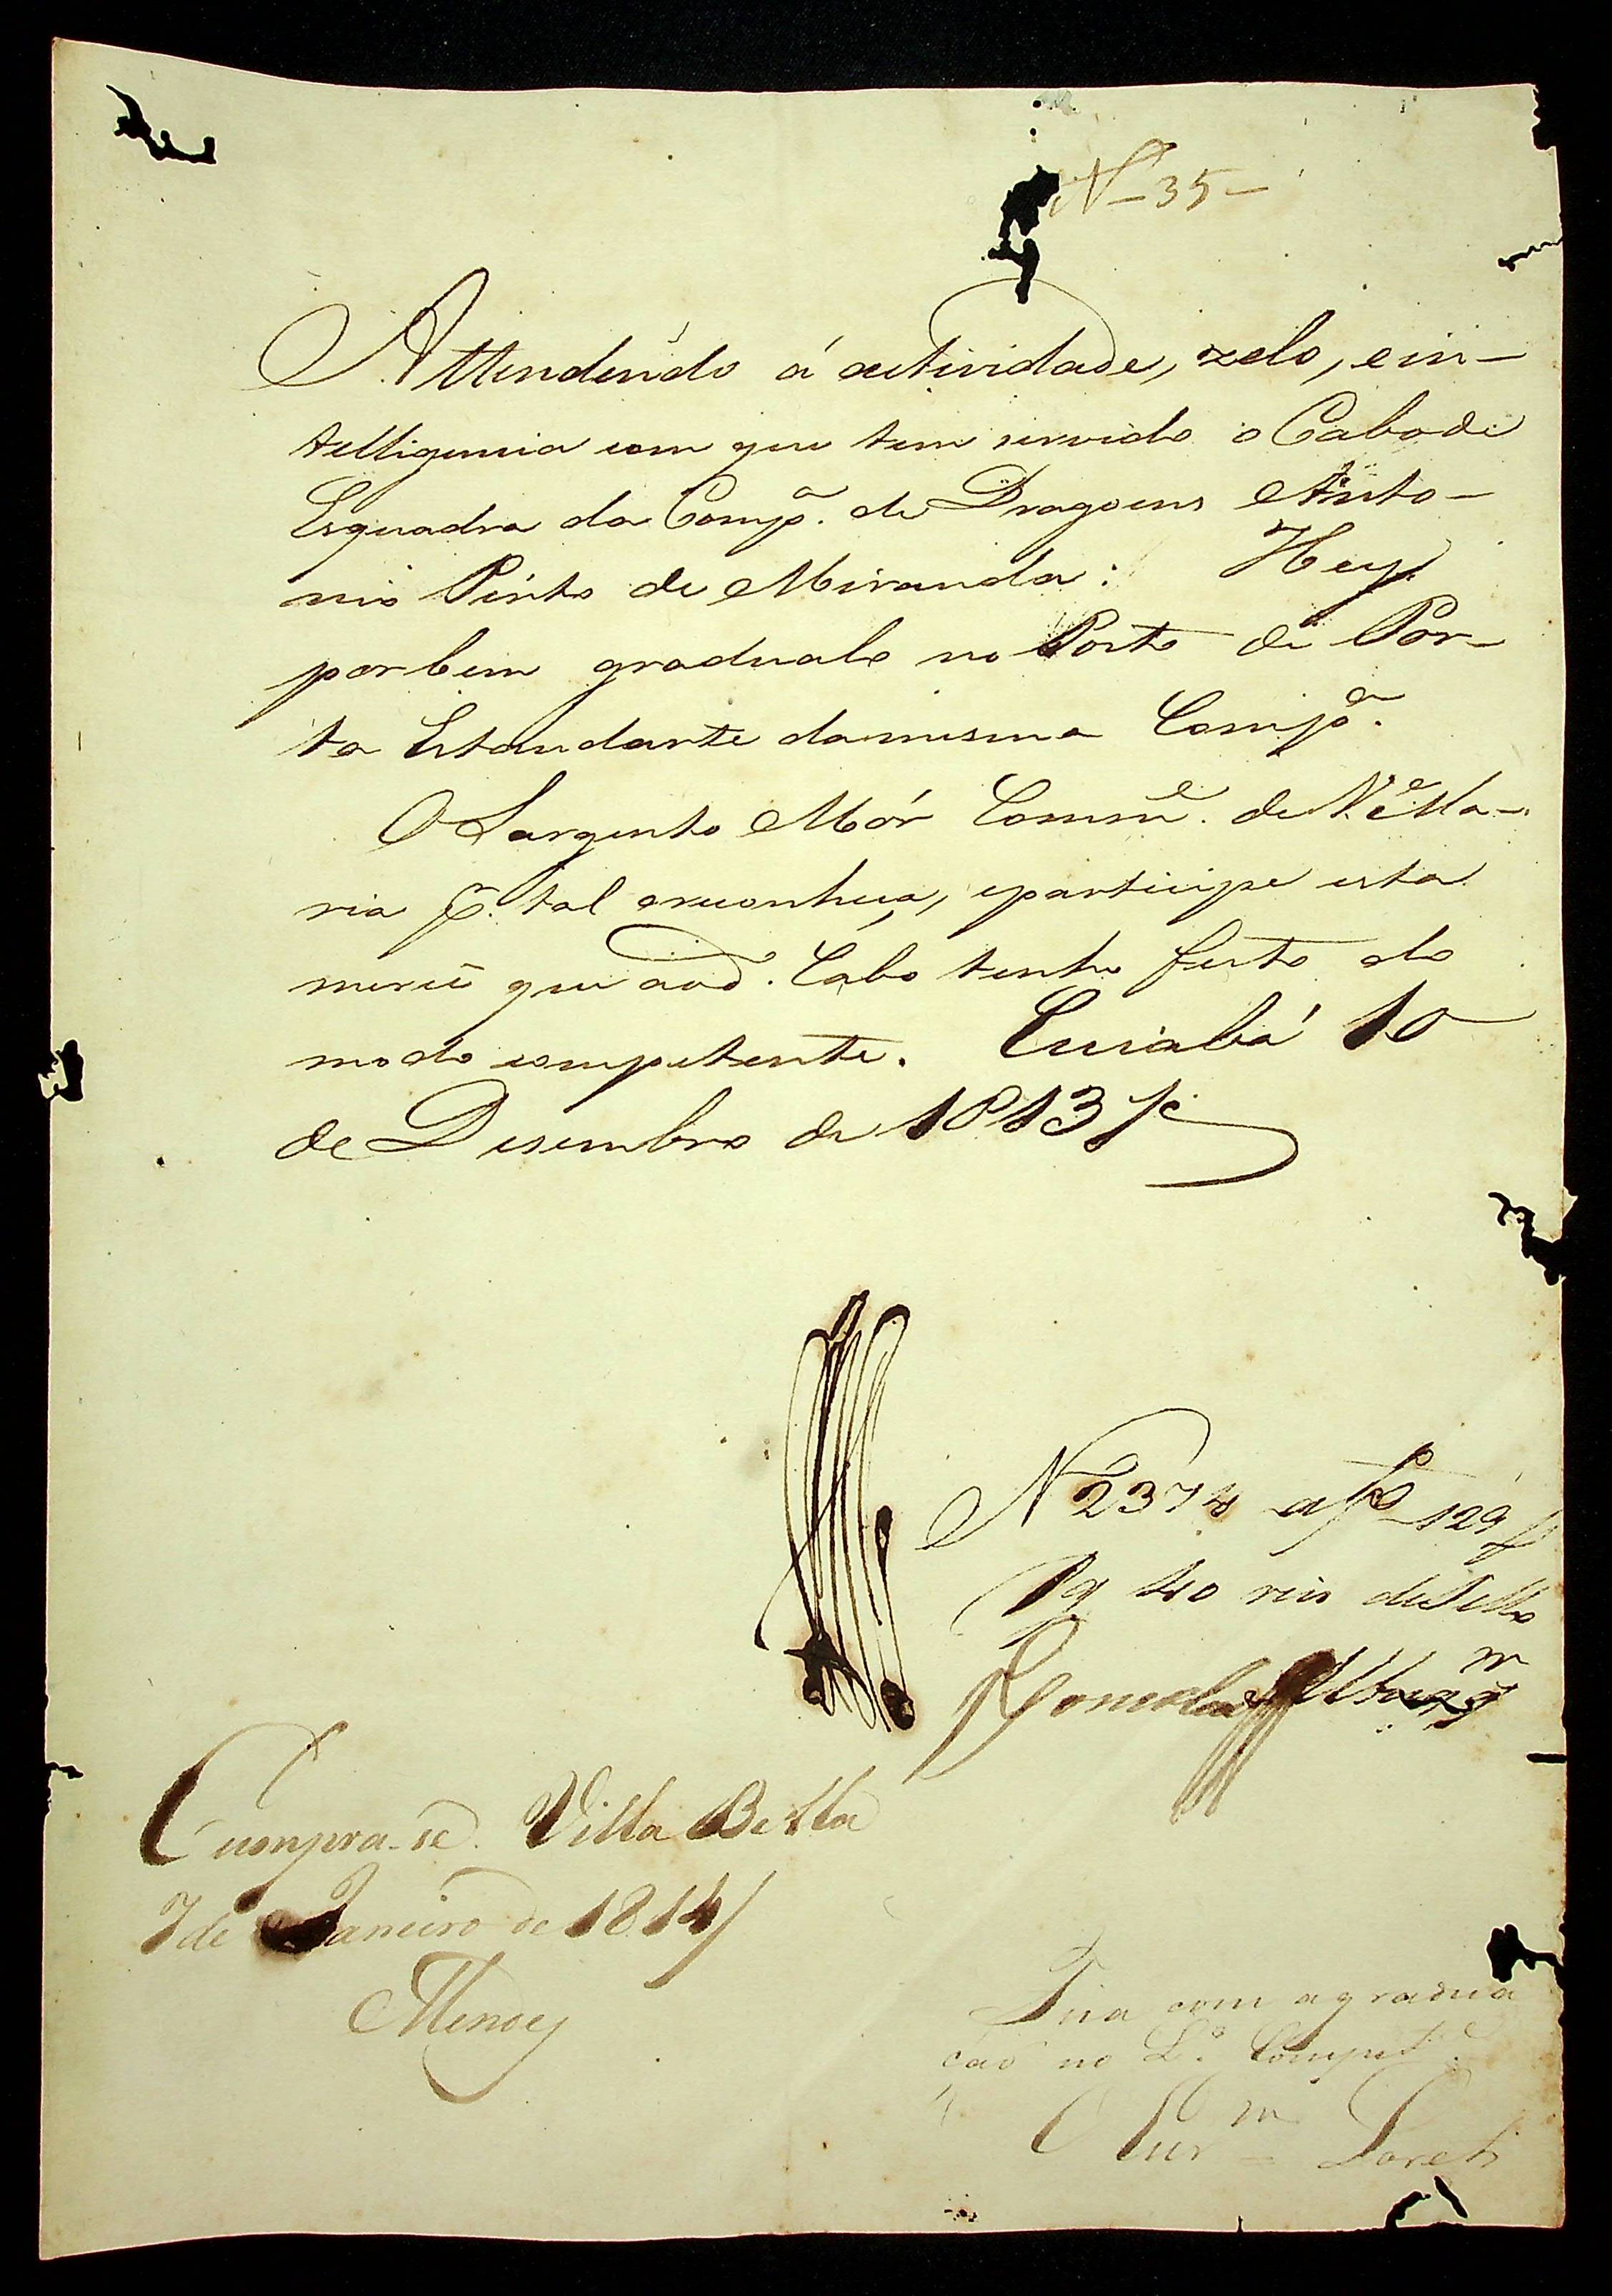 N 35
Attendendo á actividade, zelo, e in-
telligencia com que tem servido o Cabo de
Esquadra da Comp.ª de Dragoens Anto-
nio Pinto de Miranda: Hey
por bem gradualo no Posto de Por-
ta Estandarte da mesma Comp.ª
O Sargento Mór Comm.e de N.e Ma-
ria p.r tal o reconheça, e participe esta
mercê que ao d.º Cabo tenho feito do
modo competente. Cuiabá 10
de Desembro de 1813
N 2374 a f 129
Pg 40 reis de Sello
Cumpra-se. Villa Bella
7 de Janeiro de 1814
Mendes
com a gradua
çaõ no L.º Compet.e